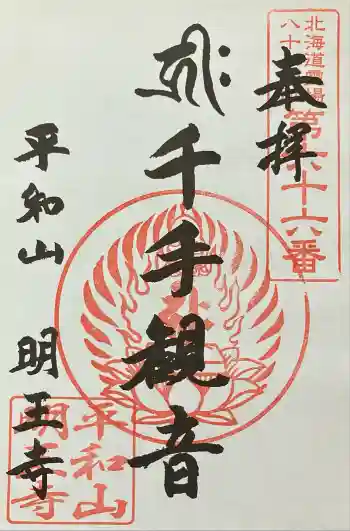 北海道霊場
八十
第六十六番
奉拝
千手観音
平和山
明王寺
平和山
明王寺